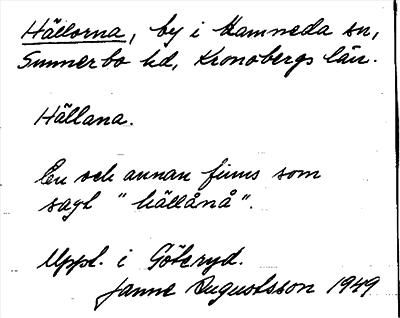 Hällorna, by i Hamneda sn,
Sunnerbo hd, Kronobergs län.
Hällana.
En och annan finns som
sagt "hällånå".
Uppt. i Göteryd.
Janne Augustsson 1949